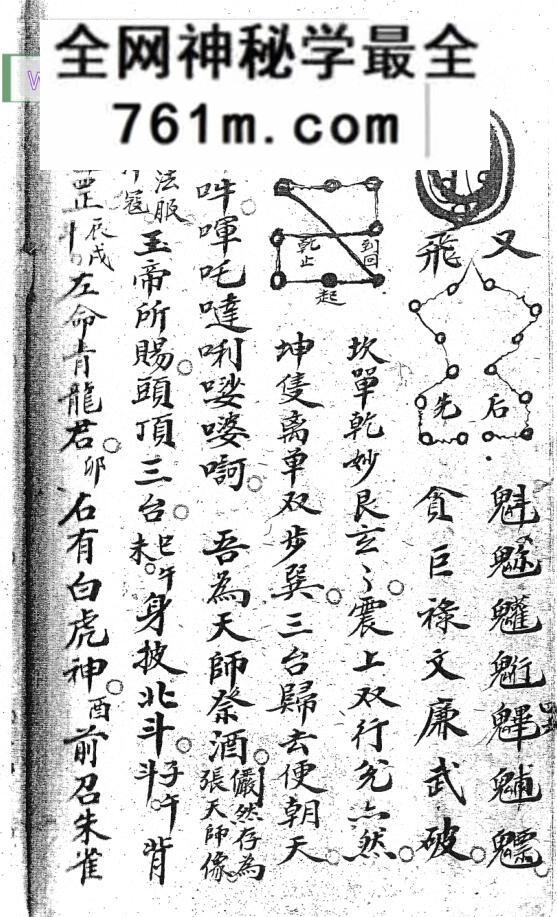 全网神秘学最全
761m.com
W
又
飛
先
后
魁𩲃魓魒
貪巨祿文廉武破
坎單乾妙艮玄々震上双行兌亦然
到回
乾止
起
坤隻离单双步巽三台歸去便朝天
吽㖶吒噠唎娑婆訶 吾為天師祭酒
儼然存為
張天師像
法服
冠
玉帝所賜頭頂三台
巳午
未
身披北斗
子午
斗
背
罡
辰戌
左命青龍君
卯
右有白虎神
酉
前召朱雀